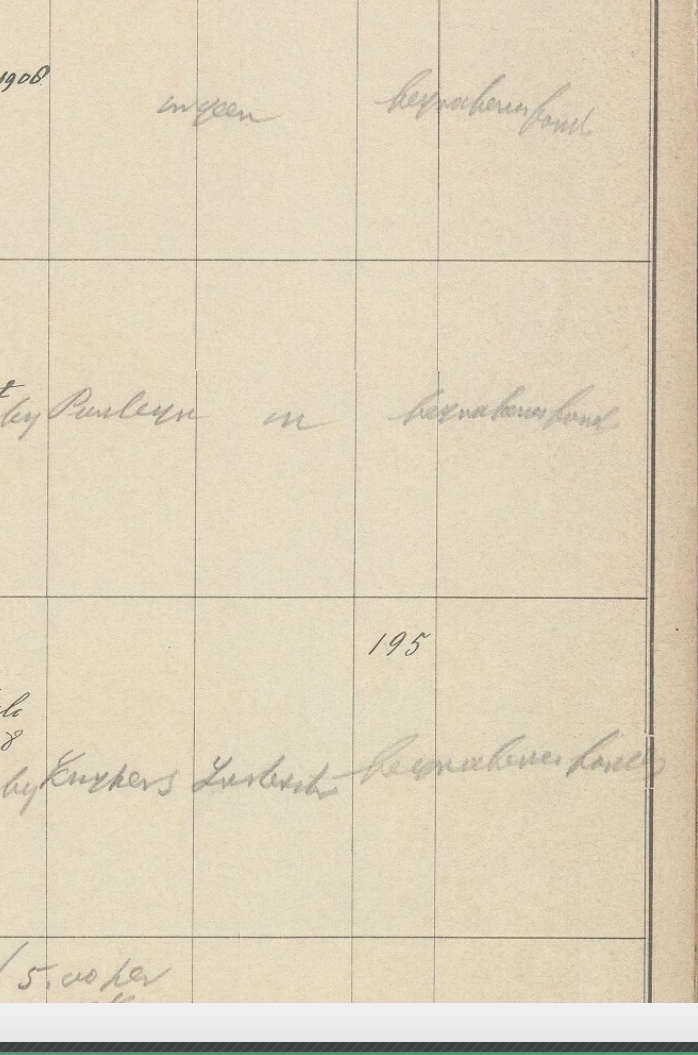 1908
in geen begrafenisfonds
by Parleyn in begrafenisfonds
195
8
by Kuypers begrafenisfonds
5.00 per